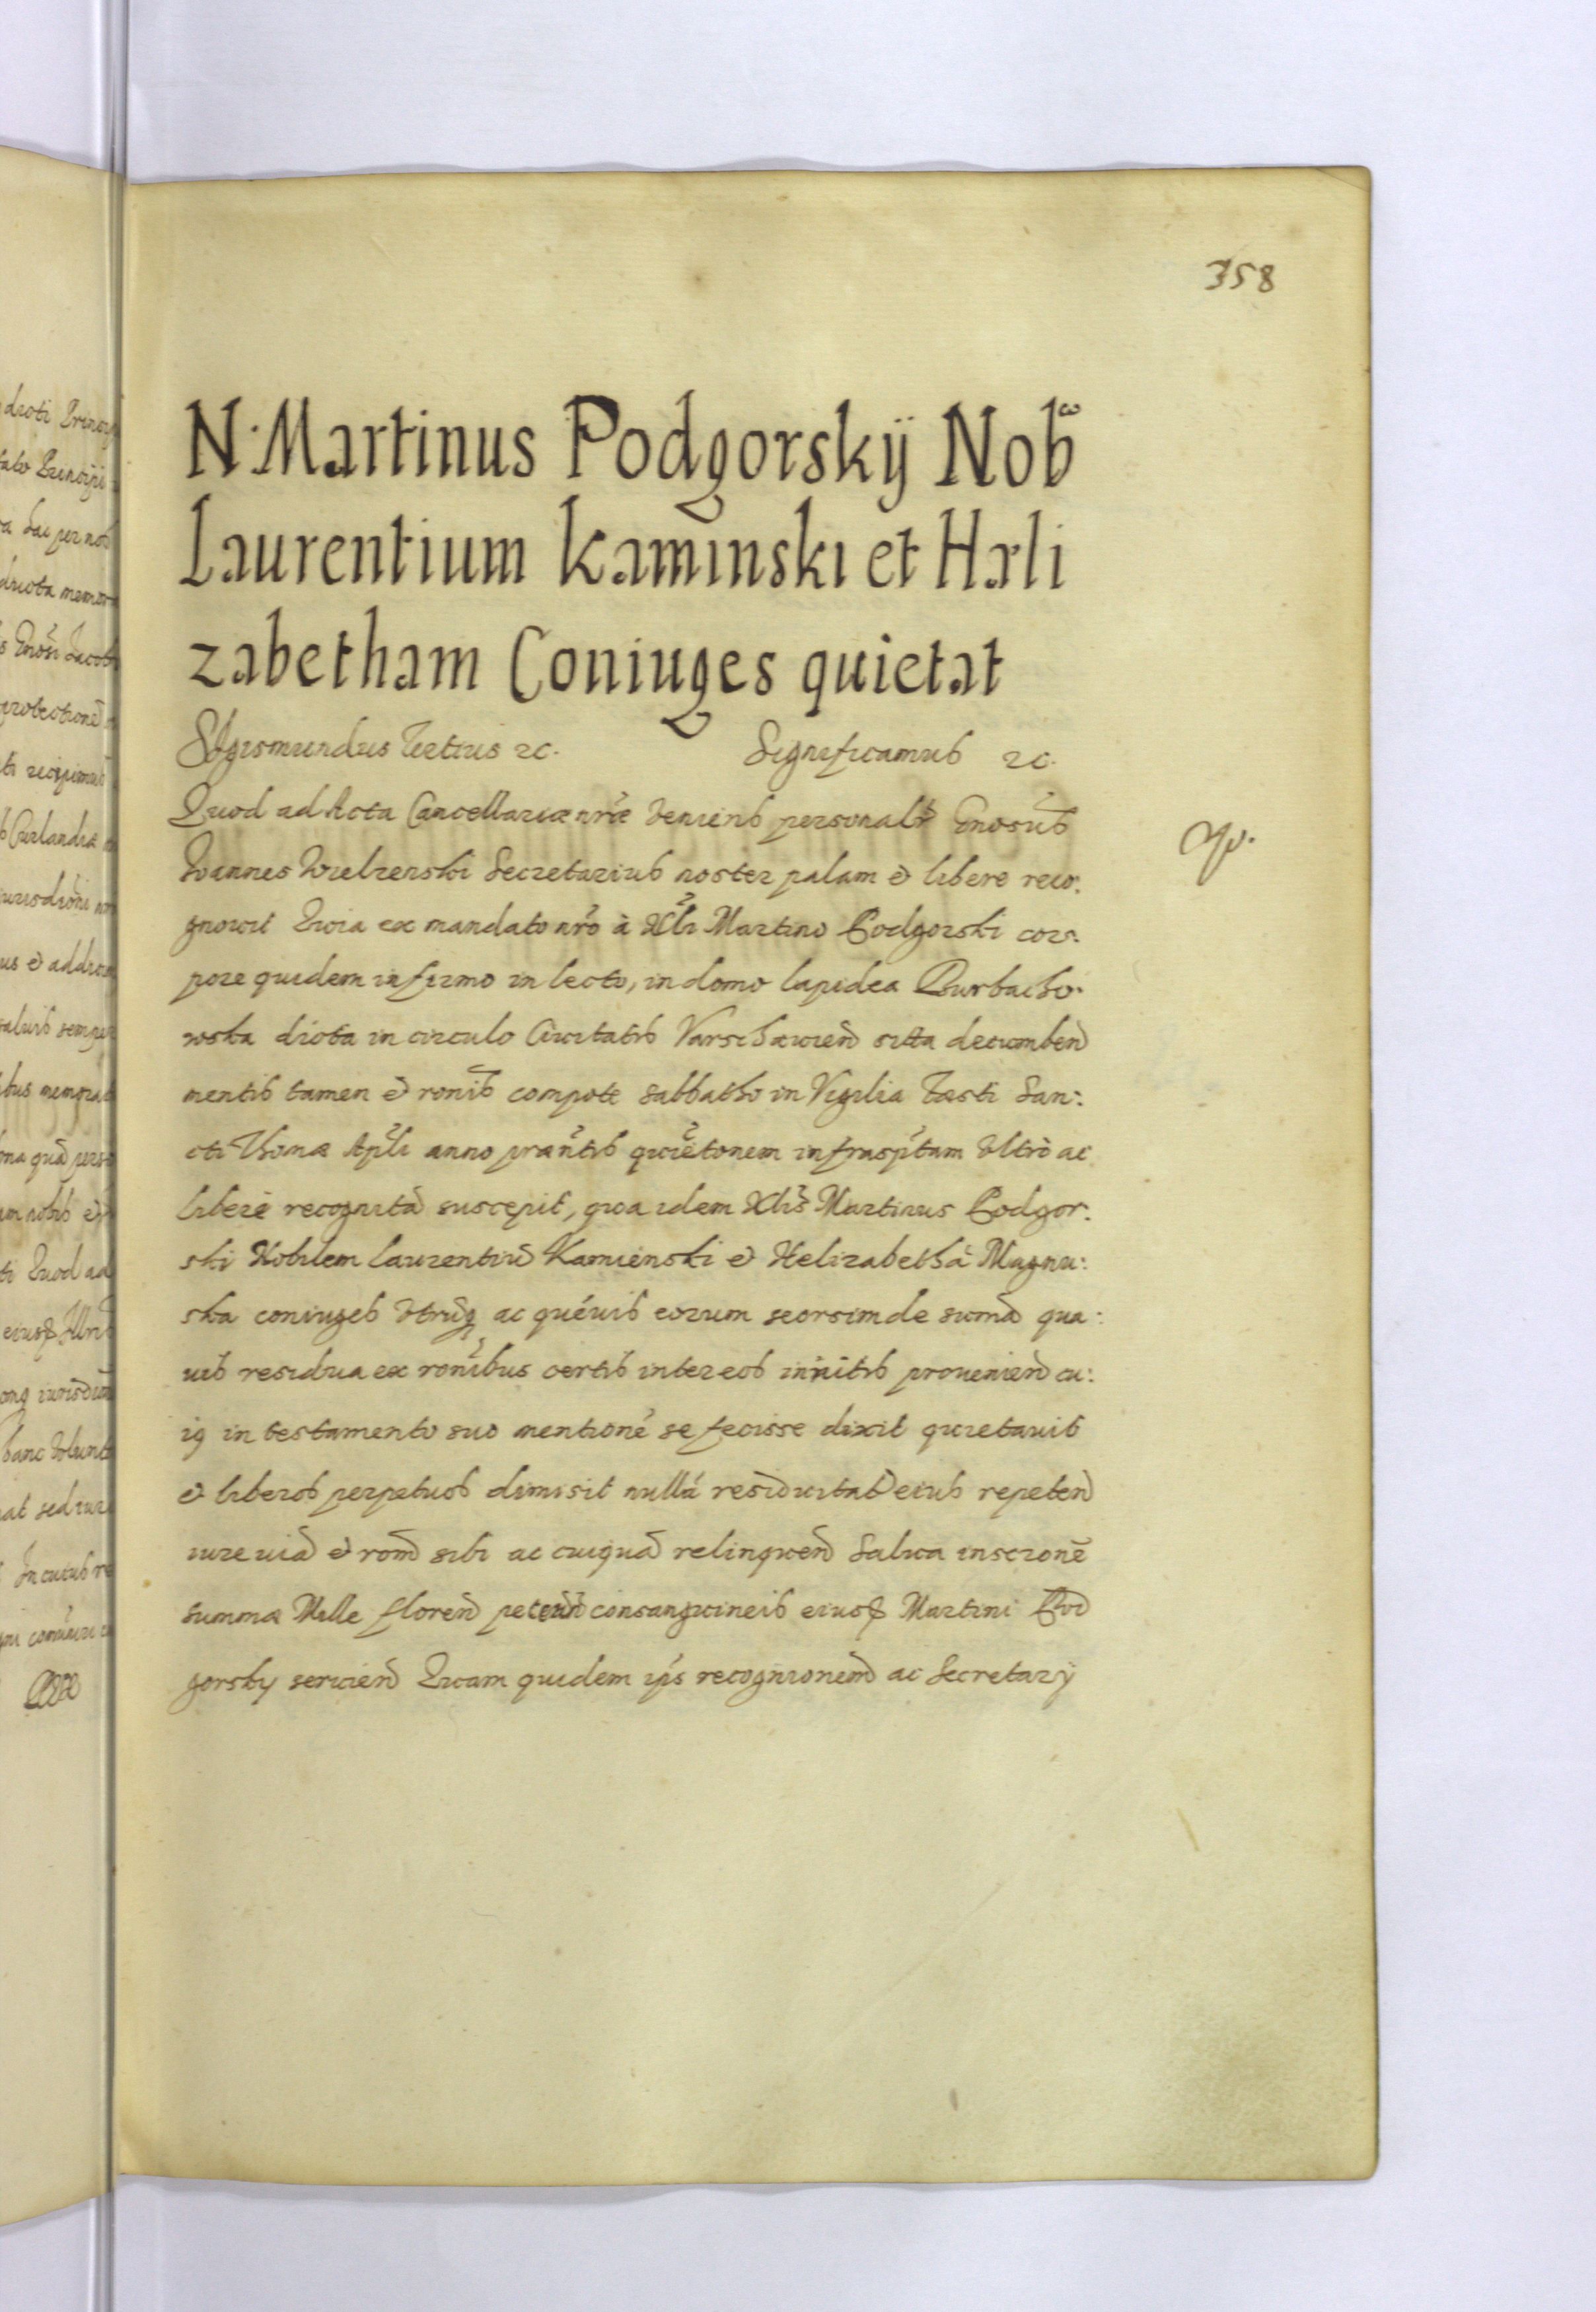 358
N. Martinus Podgorskij Nob
Laurentium Kaminski et Hæli
zabetham Coniuges quietat
Sigismundus Tertius etc. Significamus etc.
Quod ad Acta Cancellariæ nræ veniens personalr Gnosus
Ioannes Wielzenski Secretarius noster palam et libere reco:
gnouit Quia ex mandato nro à Nbli Martino Podgorski cor:
pore quidem infirmo in lecto, in domo lapidea Burbacho:
wska dicta in circulo Ciuitatis Varschauien sita decumben
mentis tamen et ronis compote Sabbatho in Vigilia Festi San:
cti Thomæ Apli anno præntis quietonem infrasptam Vltrò ac
liberè recognitã suscepit, qua idem Nblis Martinus Podgor:
ski Nobilem Laurentiũ Kamienski et Helizabethã Magnu:
ska coniuges Vtrũq ac quẽuis eorum seorsim de sumã qua:
uis residua ex ronibus certis inter eos initis prouenien cu:
iq in testamento suo mentionẽ se fecisse dixit quietauit
et liberos perpetuos dimisit nullã residuitat eius repeten
iure uiã et rom sibi ac cuiquã relinquen Salua inscrionẽ
summæ Mille floren consanguineis eiusd Martini Pod
gorsky seruien Quam quidem ips recognionem ac Secretarij